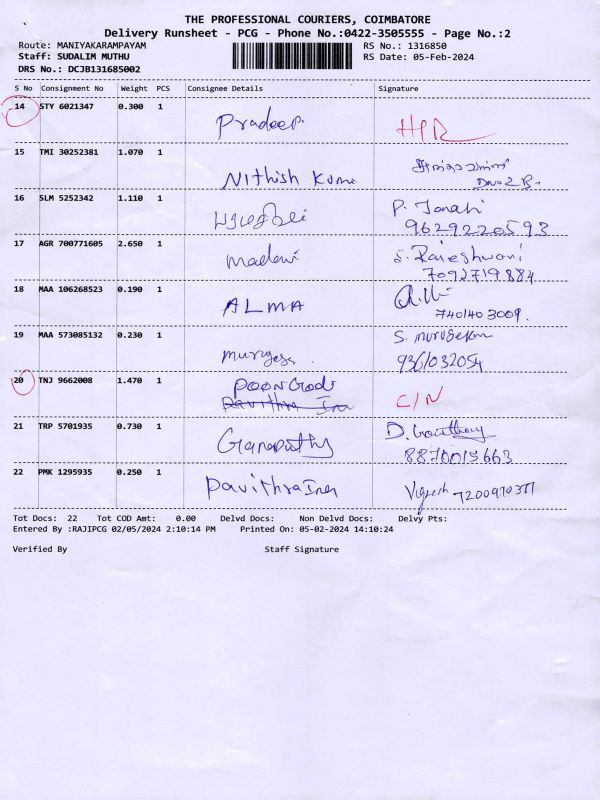 THE PROFESSIONAL COURIERS, COIMBATORE
Delivery Runsheet - PCG - Phone No.:0422-3505555 - Page No.:2
Route: MANIYAKARAMPAYAM RS No.: 1316850
Staff: SUDALIM MUTHU RS Date: 05-Feb-2024
DRS No.: DCJB131685002
S No Consignment No Weight PCS Consignee Details Signature
14 STY 6021347 0.300 1 Pradeep. HPR
15 TMI 30252381 1.070 1 Nithish Kumar
16 SLM 5252342 1.110 1 P. Janaki
9629220593
17 AGR 700771605 2.650 1 S. Rajeshwari
7092719884
18 MAA 106268523 0.190 1 ALMA
7401403009.
19 MAA 573085132 0.230 1 Murugesa. S. Murugesan
9361032054
20 TNJ 9662008 1.470 1 C/N
21 TRP 5701935 0.730 1 Ganapathy D. Gowthamy
8870015663
22 PMK 1295935 0.250 1 Pavithra Vignesh
Tot Docs: 22 Tot COD Amt: 0.00 Delvd Docs: Non Delvd Docs: Delvy Pts:
Entered By :RAJIPCG 02/05/2024 2:10:14 PM Printed On: 05-02-2024 14:10:24
Verified By Staff Signature